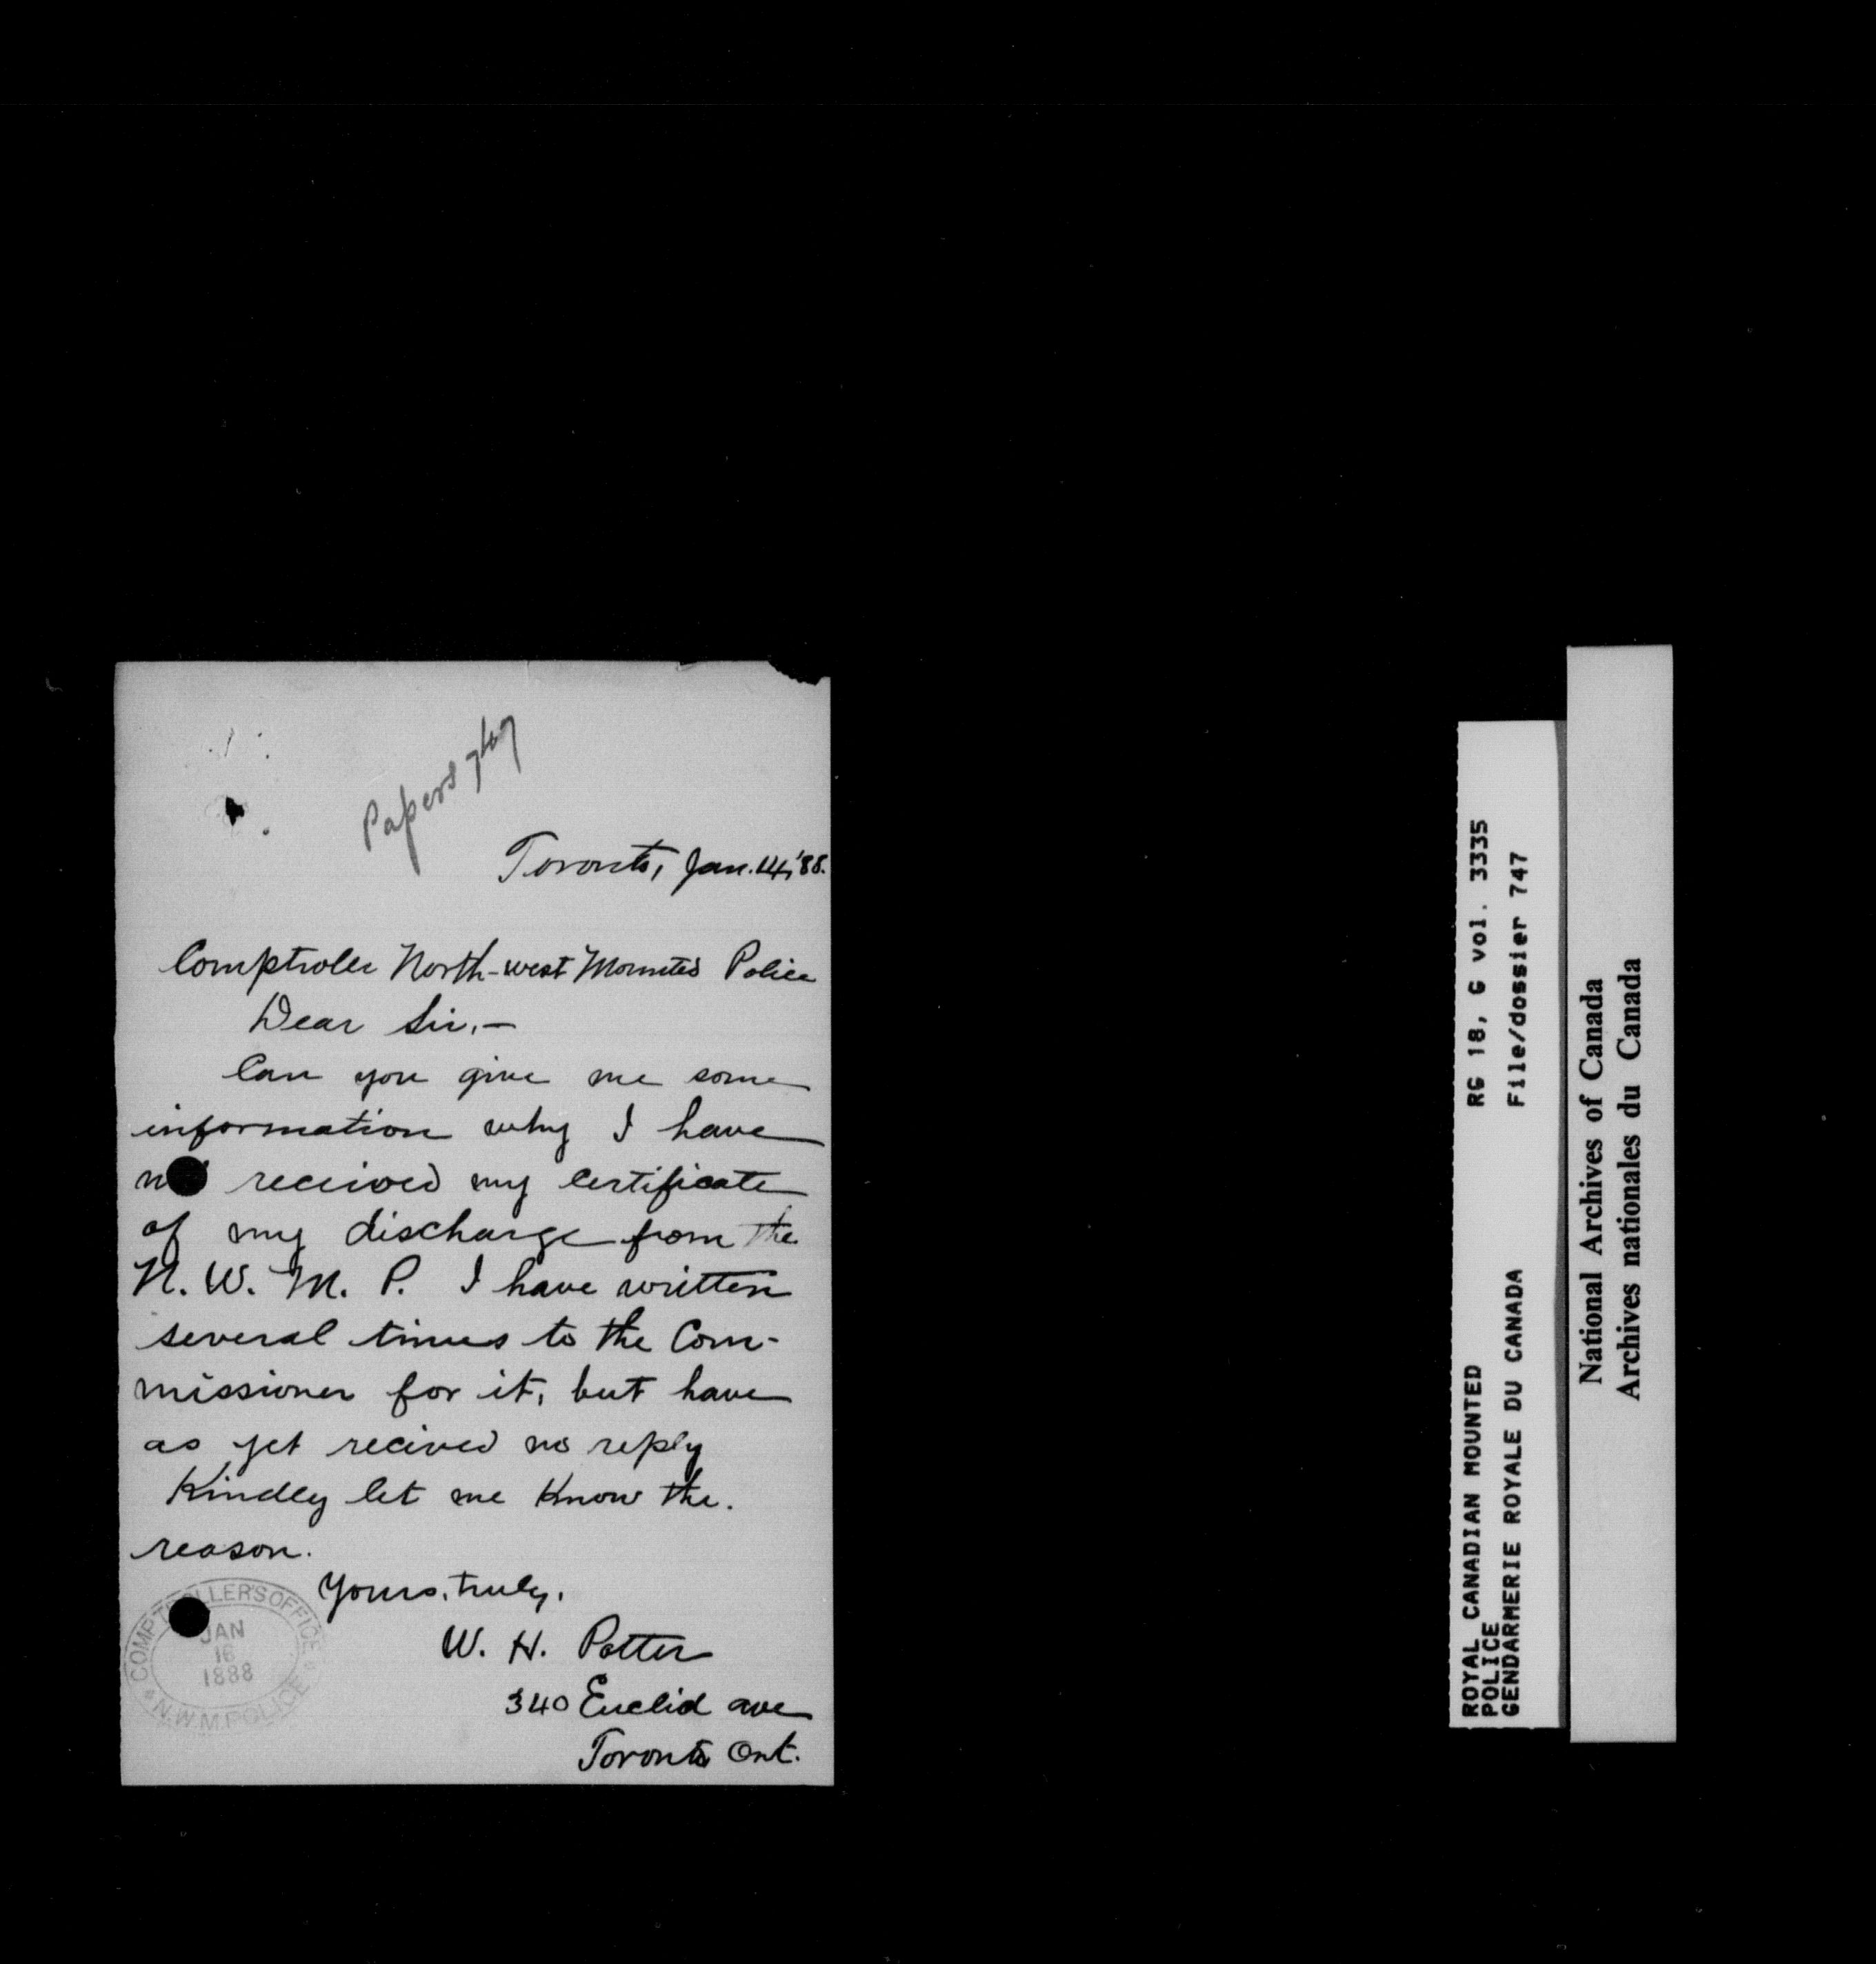 Papers 747
Toronto, Jan. 14, '88.
Comptroler North-west Mounted Police
Dear Sir,—
Can you give me some
information why I have
received my certificate
of my discharge from the
N. W. M. P. I have written
several times to the Com-
missioner for it, but have
as yet recived no reply
Kindly let me know the.
reason.
Yours, truly,
W. H. Potter
340 Euclid ave
Toronto Ont.
COMPTROLLER'S OFFICE
JAN
16
1888
* N.W.M. POLICE *
ROYAL CANADIAN MOUNTED
POLICE
GENDARMERIE ROYALE DU CANADA
RG 18, G vol. 3335
File/dossier 747
National Archives of Canada
Archives nationales du Canada